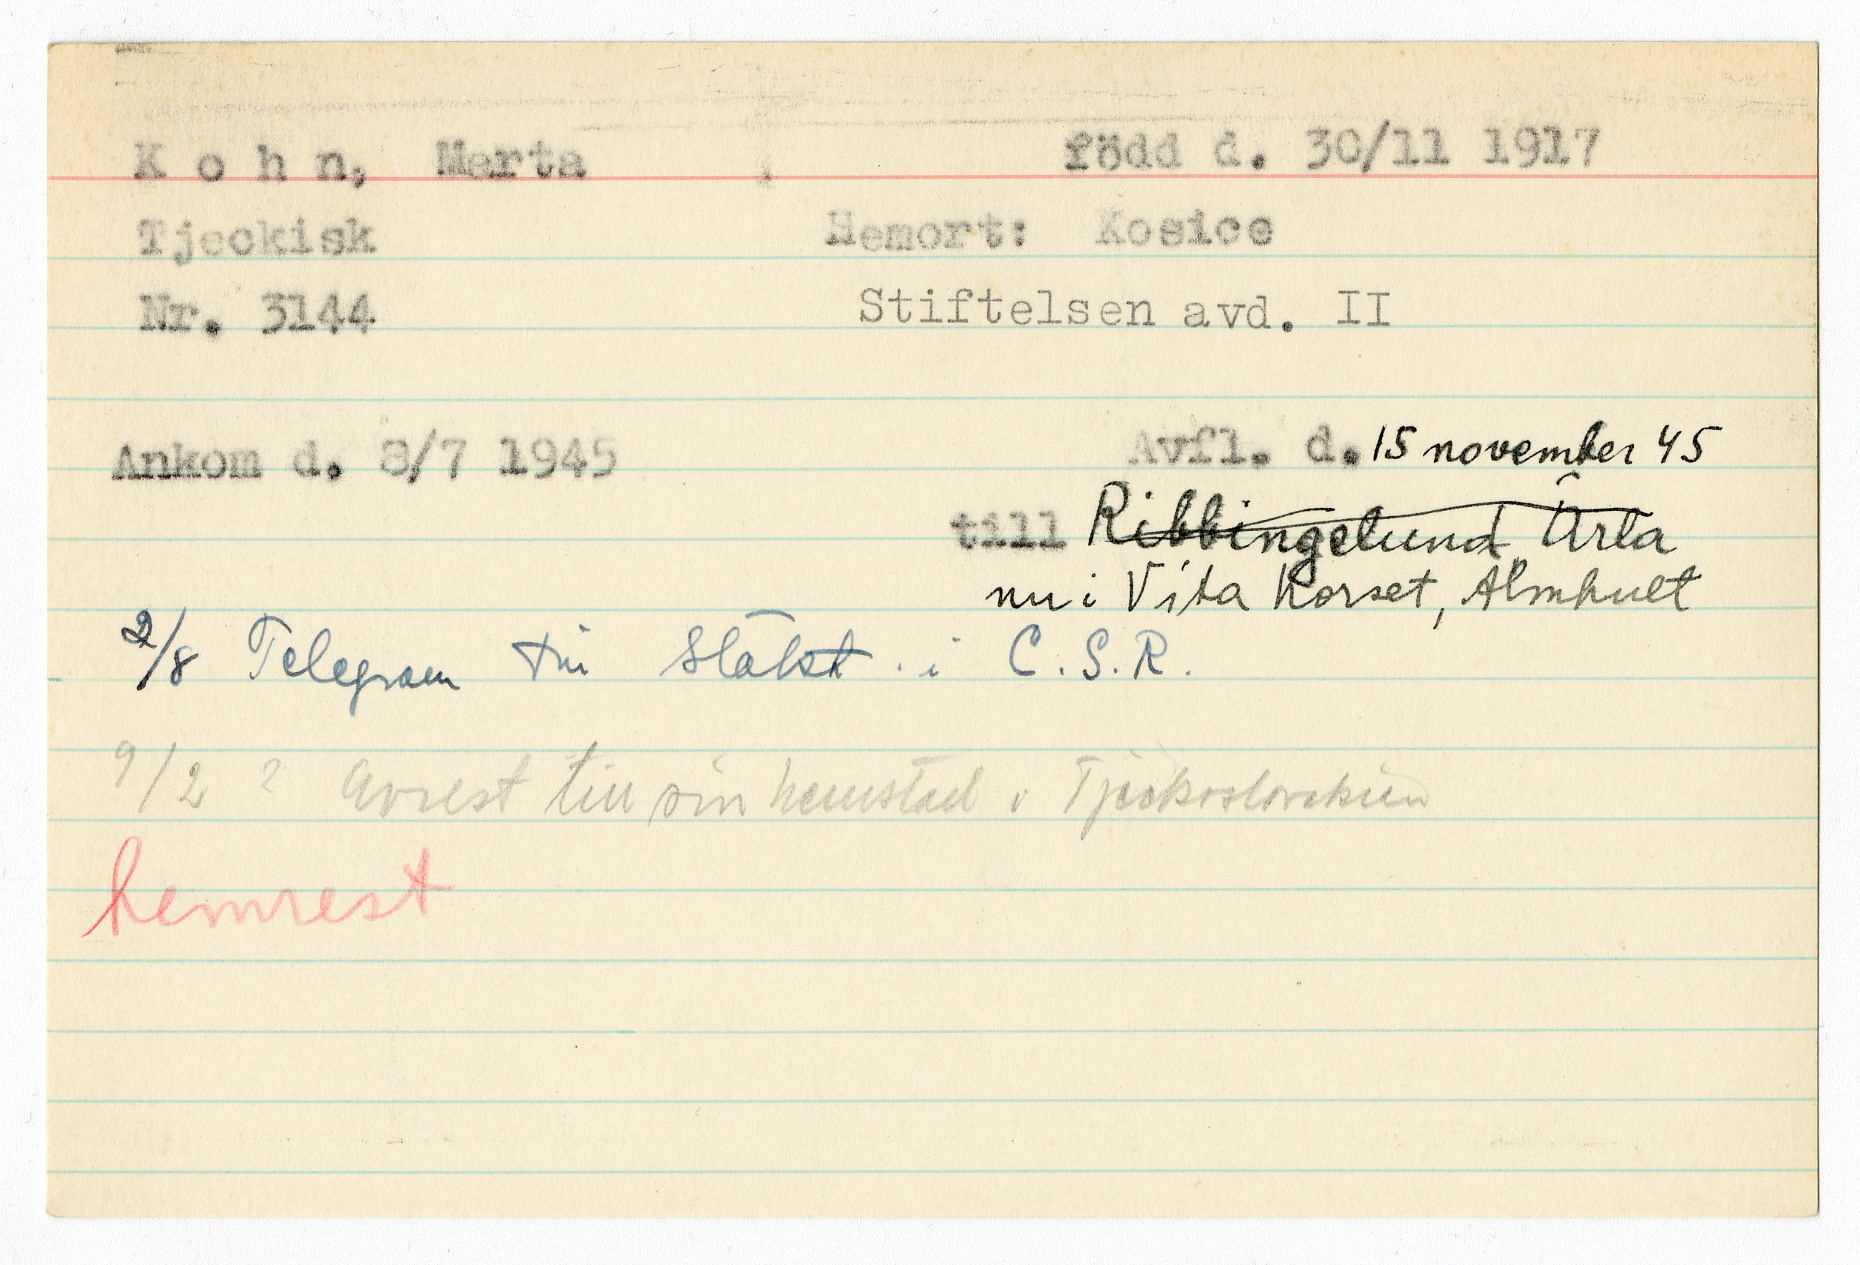 K o h n, Marta född d. 30/11 1917
Tjeckisk Hemort: Kosice
Nr. 3144 Stiftelsen avd. II
Ankom d. 8/7 1945 Avfl. d. 15 november 45
till Ribbingelund Ärla
nu i Vita Korset, Älmhult
2/8 Telegram till släkt i C.S.R.
9/2 ? Avrest till sin hemstad i Tjeckoslovakien
hemrest